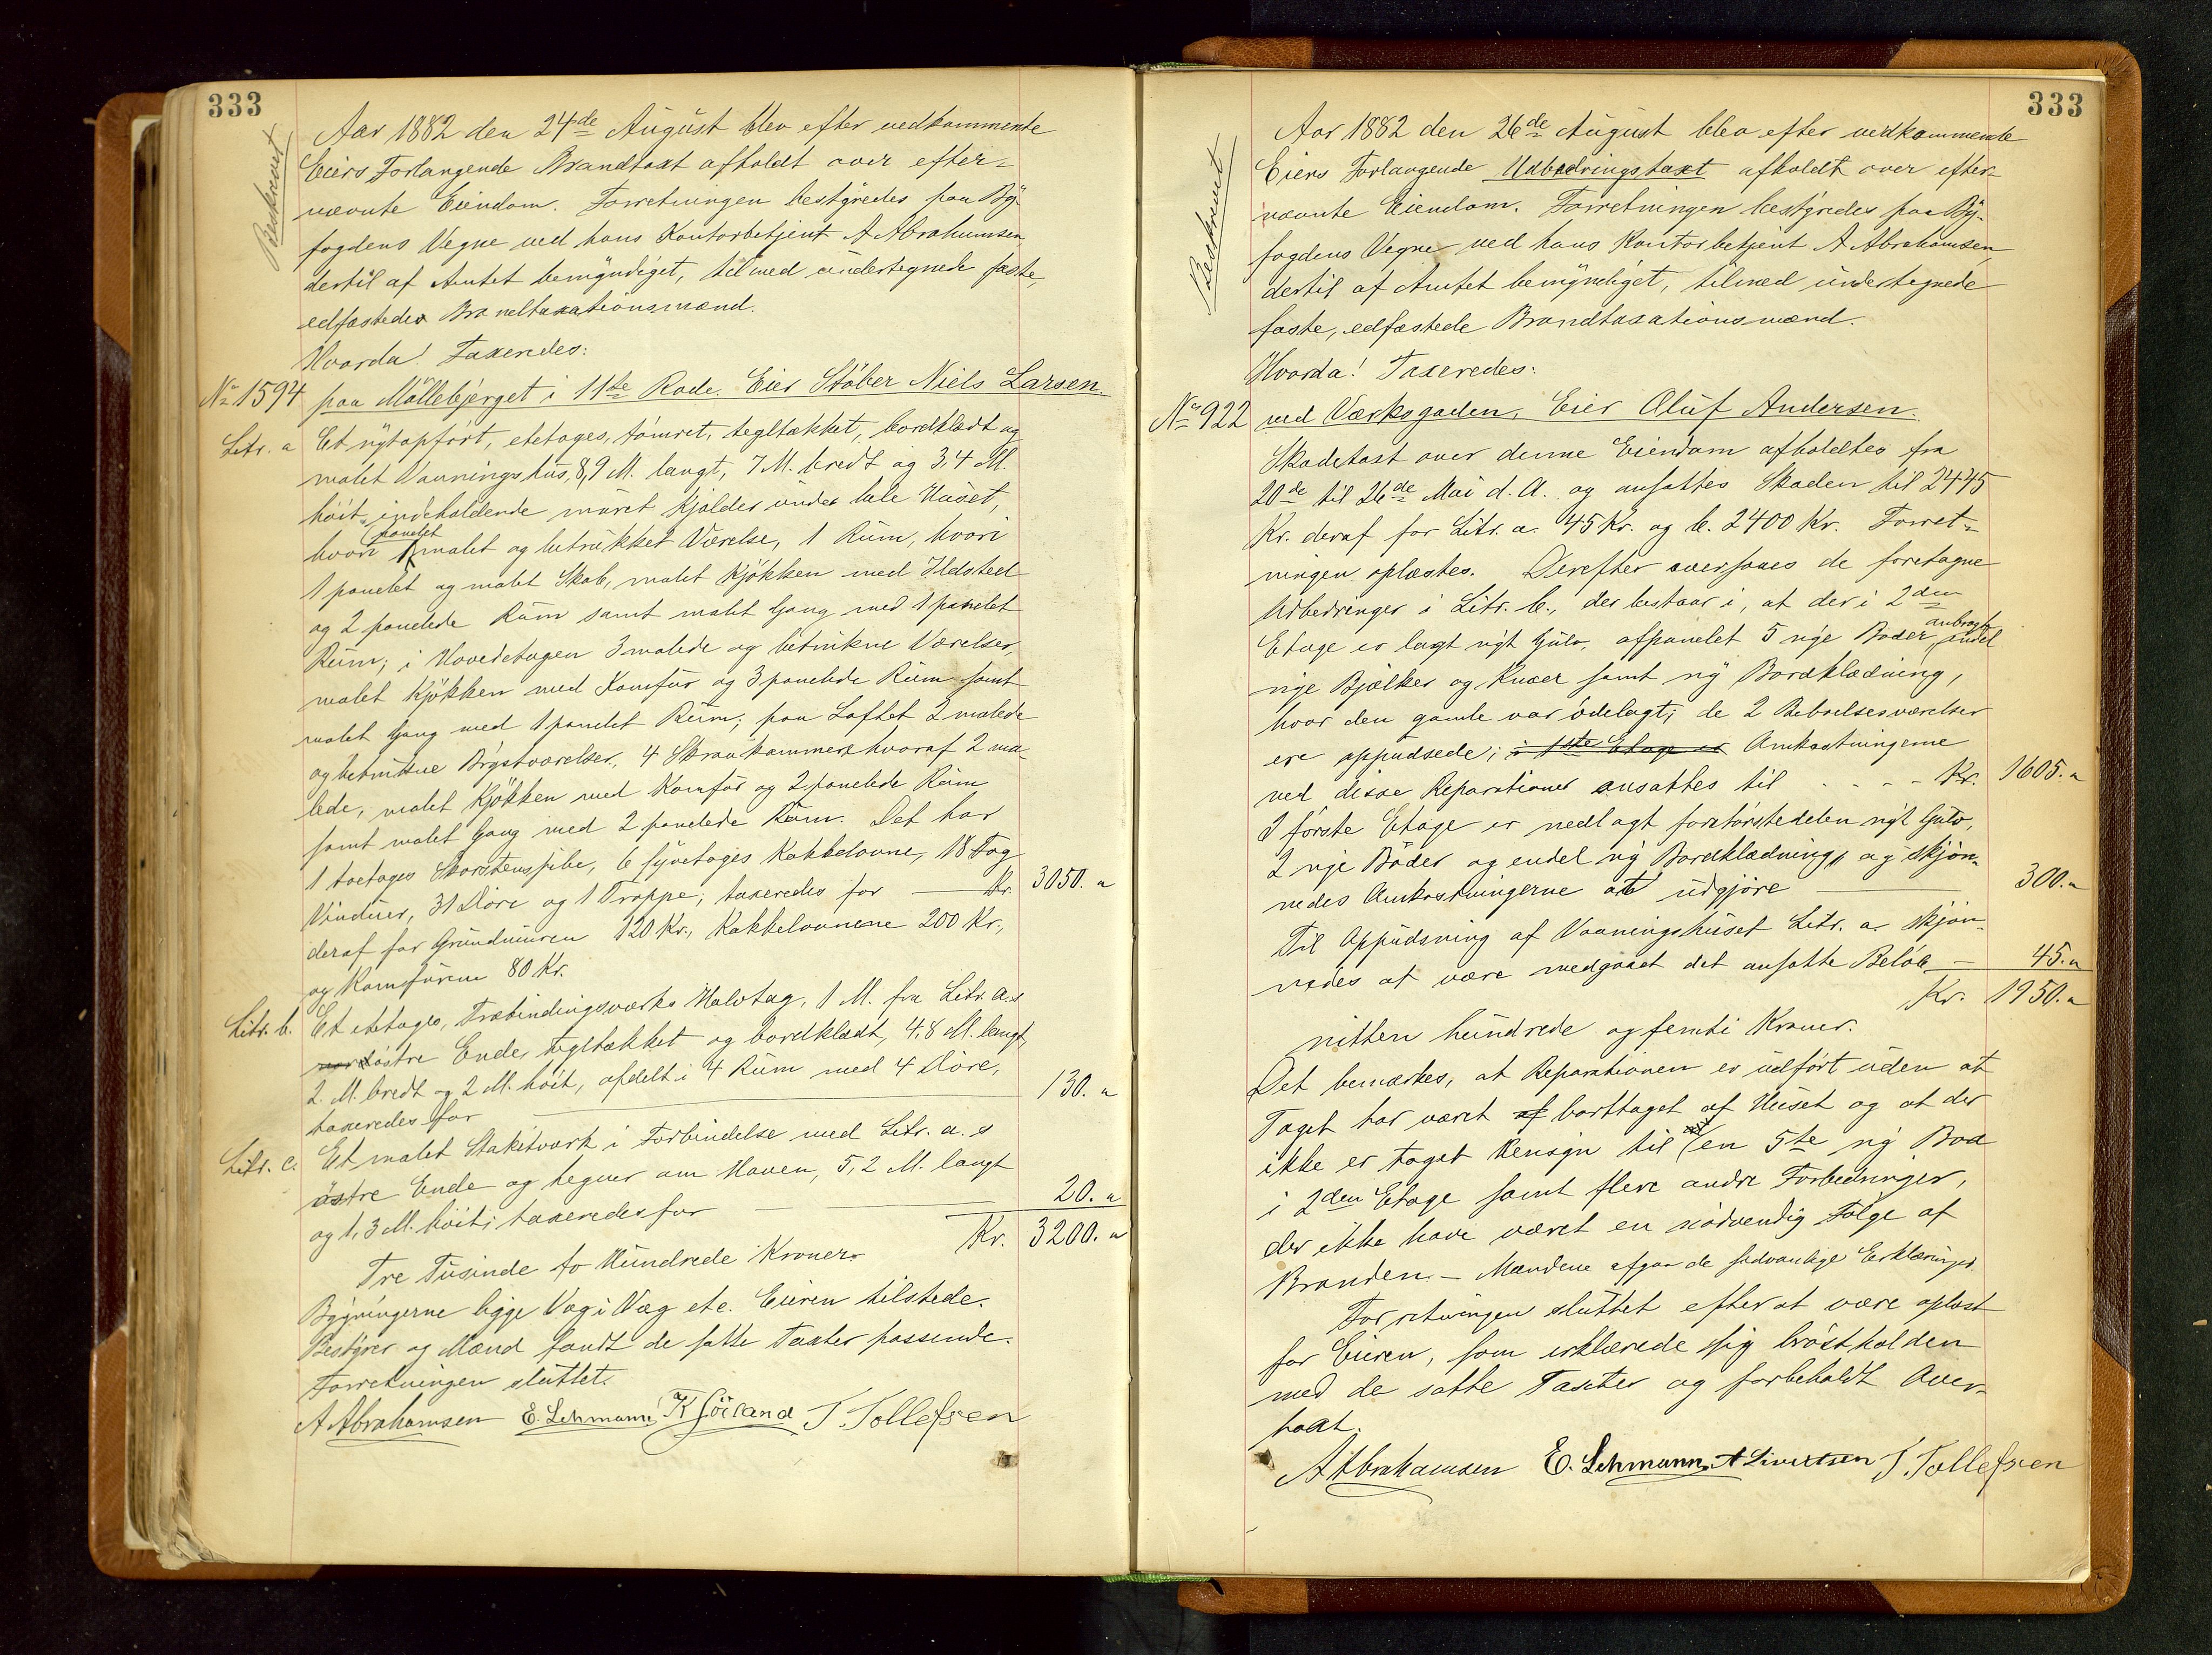 333
Beskrevet
Aar 1882 den 24de August blev efter vedkommente
Eiers Forlangende Brandtaxt afholdt over efter-
nævnte Eiendom. Forretningen bestyredes paa By-
fogdens Vegne ved hans Kontorbetjent A Abrahamsen,
dertil af Amtet bemyndiget, tilmed undertegnede faste,
edfæstede Brandtaxationsmænd.
Hvorda! Taxeredes:
No 1594 paa Möllebjerget i 11te Rode. Eier Stöber Niels Larsen.
Litr. a Et nytopfört, etetages, tömret, tegltækket, bordklædt og
malet Vaaningshus, 8,9 M. langt, 7 M. bredt og 3,4 M.
höit, indeholdende muret Kjælder under hele Huset,
hvori 1 panelet malet og betrukket Værelse, 1 Rum, hvori
1 panelet og malet Skab, malet Kjökken med Ildsted
og 2 panelede Rum samt malet Gang med 1 panelet
Rum; i Hovedetagen 3 malede og betrukne Værelser,
malet Kjökken med Komfur og 3 panelede Rum samt
malet Gang med 1 panelet Rum; paa Loftet 2 malede
og betrukne Brystværelser, 4 Skraakammere hvoraf 2 ma-
lede, malet Kjökken med Komfur og 2 panelede Rum
samt malet Gang med 2 panelede Rum. Det har
1 toetages Skorstenspibe, 6 fyretages Kakkelovne, 18 Fag
Vinduer, 31 Döre og 1 Trappe; taxeredes for — Kr. 3050. "
deraf for Grundmuren 120 Kr., Kakkelovnene 200 Kr.,
og Komfurene 80 Kr.
Litr. b. Et etetages, Træbindingsværks Halvtag, 1 M. fra Litr. a.s
östre Ende, tegltækket og bordklædt, 4,8 M. langt,
2. M. bredt og 2 M. höit, afdelt i 4 Rum med 4 Döre,
taxeredes for — 130. "
Litr. c. Et malet Stakitværk i Forbindelse med Litr. a. s
östre Ende og hegner om Haven, 5,2 M. langt
og 1,3 M. höit; taxeredes for — 20. "
Kr. 3200. "
Tre Tusinde to Hundrede Kroner.
Bygningerne ligge Væg i Væg etc. Eieren tilstede.
Bestyrer og Mænd fandt de satte Taxter passende.
Forretningen sluttet.
A Abrahamsen E. Lehmann T. Tollefsen
333
Beskrevet
Aar 1882 den 26de August blev efter vedkommende
Eiers Forlangende Udbedringstaxt afholdt over efter-
nævnte Eiendom. Forretningen bestyredes paa By-
fogdens Vegne ved hans Kontorbetjent A Abrahamsen,
dertil af Amtet bemyndiget, tilmed undertegnede
faste, edfæstede Brandtaxationsmænd.
Hvorda! Taxeredes:
No 922 ved Værksgaden, Eier Oluf Andersen.
Skadetaxt over denne Eiendom afholdtes fra
20de til 26de Mai d. A. og ansattes Skaden til 2445
Kr. deraf for Litr. a. 45 Kr. og b. 2400 Kr. Forret-
ningen oplæstes. Derefter oversaaes de foretagne
Udbedringer i Litr. b., der bestaar i, at der i 2den
Etage er lagt nyt Gulv, afpanelet 5 nye Boder, anbragt endel
nye Bjælker og Knæer samt ny Bordklædning,
hvor den gamle var ödelagt; de 2 Beboelsesværelser
ere oppudsede; i 1ste Etage er Omkostningerne
ved disse Reparationer ansattes til - - - Kr. 1605. "
I förste Etage er nedlagt förstedelen nyt Gulv,
2 nye Boder og endel ny Bordklædning, og skjön-
nedes Omkostningerne at udgjöre — 300. "
Til Oppudsning af Vaaningshuset Litr. a. skjön-
nedes at være medgaaet det ansatte Belöb — 45. "
Kr. 1950. "
nitten hundrede og femti Kroner.
Det bemærkes, at Reparationen er udfört uden at
Taget har været af borttaget af Huset og at der
ikke er taget Hensyn til en 5te ny Bod
i 2den Etage samt flere andre Forbedringer,
der ikke have været en nödvendig Fölge af
Branden. — Mændene afgav de sedvanlige Erklæringer.
Forretningen sluttet efter at være oplæst
for Eieren, som erklærede sig bröstholden
med de satte Taxter og forbeholdt Over-
taxt.
A Abrahamsen E. Lehmann A Sivertsen T. Tollefsen